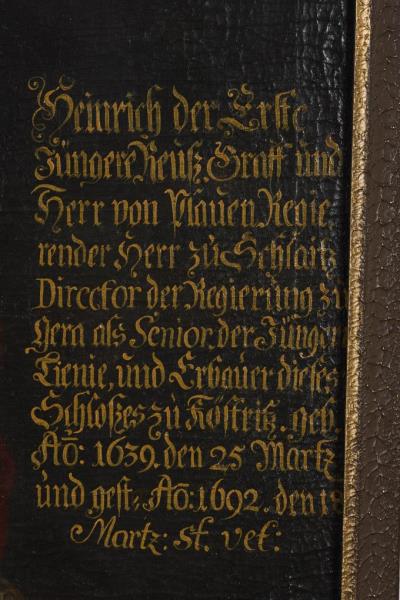 Heinrich der Erste
Jüngere Reuß, Graff und
Herr von Plauen, Regie-
render Herr zu Schlaitz
Director der Regierung zu
Gera als Senior der Jünger
Lienie, und Erbauer dieses
Schloßes zu Köstritz. geb.
Aō: 1639. den 25 Martz
und gest: Aō: 1692. den 18
Martz: st. vet: